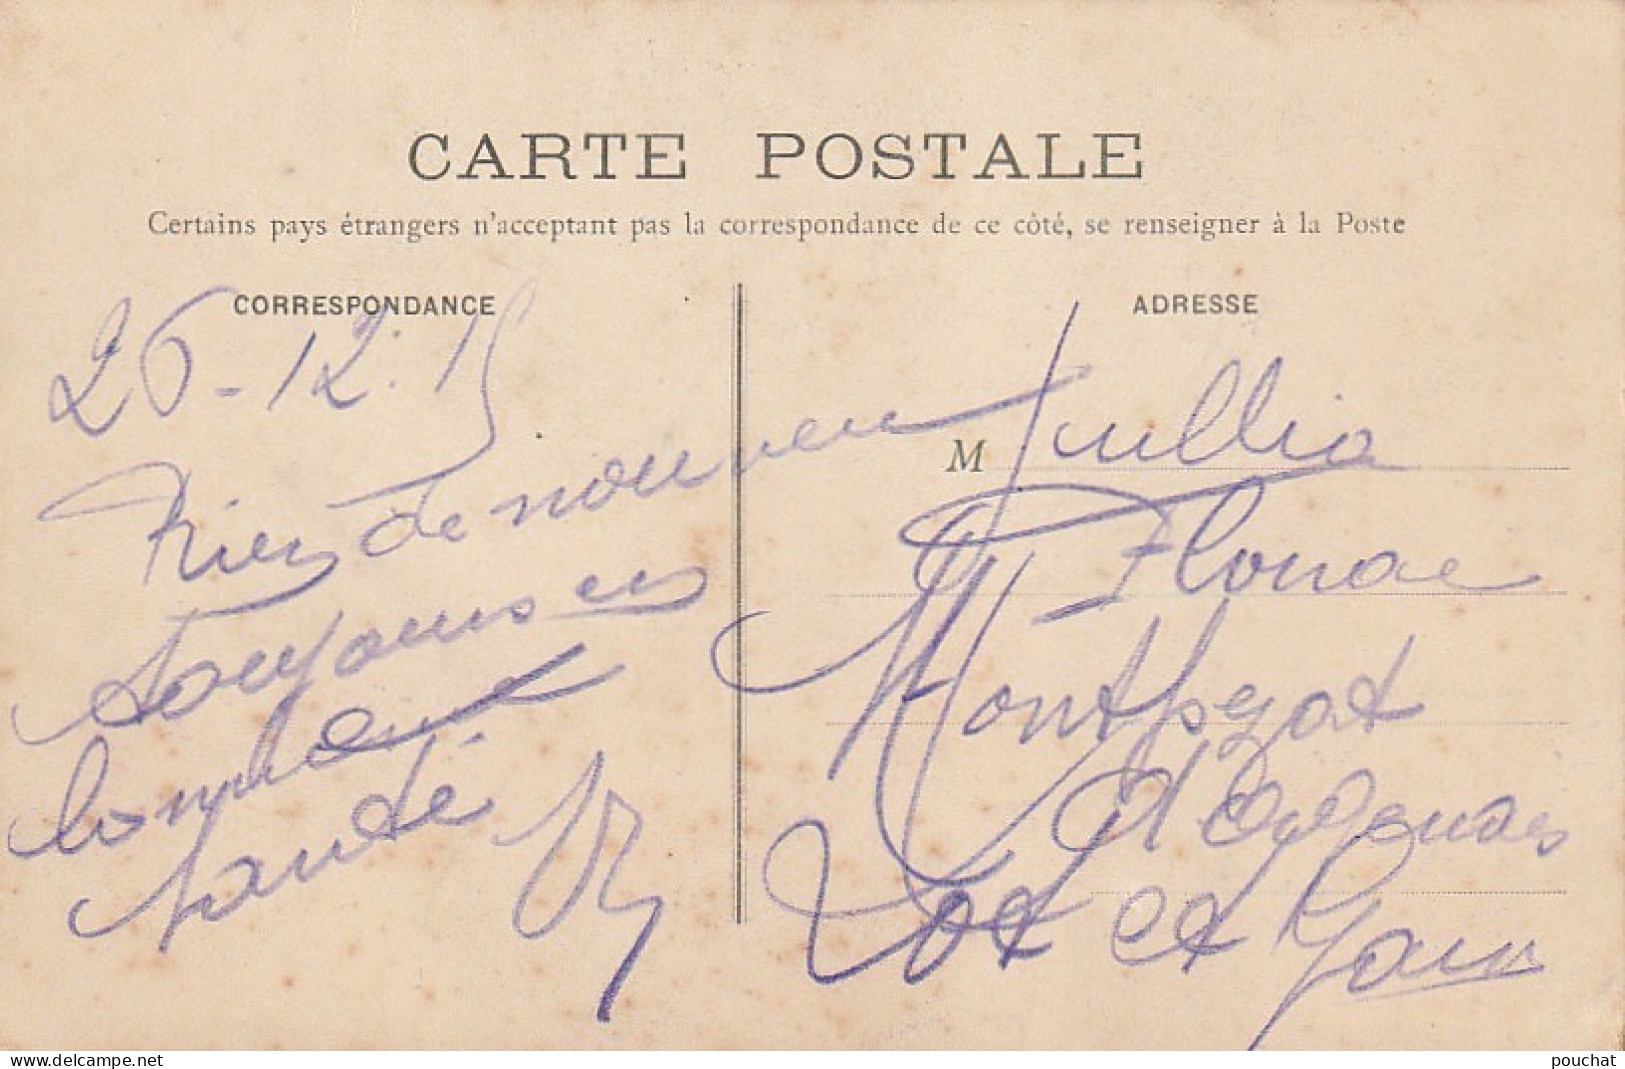 CARTE POSTALE
Certains pays étrangers n'acceptant pas la correspondance de ce côté, se renseigner à la Poste
CORRESPONDANCE
26-12.15
Rien de nouveau
toujours en
bonne
santé
ADRESSE
M Jullia
Florac
Montpezat
d'agenais
Lot et Gar
www.delcampe.net
pouchat